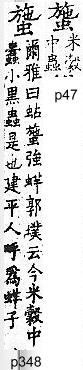 䗐
米穀
中蟲
p47
䗐
爾雅曰蛄䗐強蛘郭璞云今米穀中
蠹小黑蟲是也建平人呼爲蛘子
p348